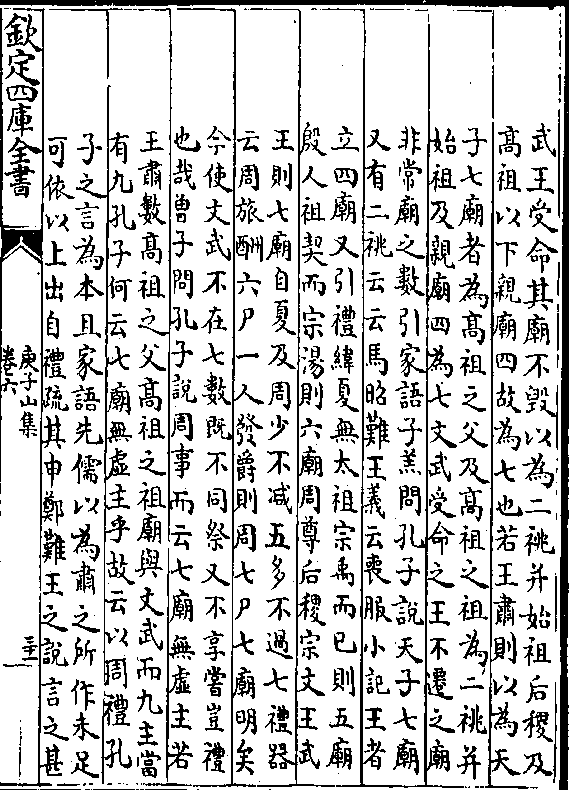 武王受命其廟不毁以為二祧并始祖后稷及
高祖以下親廟四故為七也若王肅則以為天
子七廟者為高祖之父及高祖之祖為二祧并
始祖及親廟四為七文武受命之王不遷之廟
非常廟之數引家語子羔問孔子說天子七廟
又有二祧云云馬昭難王義云喪服小記王者
立四廟又引禮緯夏無太祖宗禹而已則五廟
殷人祖契而宗湯則六廟周尊后稷宗文王武
王則七廟自夏及周少不减五多不過七禮器
云周旅酬六尸一人發爵則周七尸七廟明矣
今使文武不在七數既不同祭又不享嘗豈禮
也哉曽子問孔子說周事而云七廟無虚主若
王肅數高祖之父高祖之祖廟與文武而九主當
有九孔子何云七廟無虚主乎故云以周禮孔
子之言為本且家語先儒以為肅之所作未足
可依以上出自禮疏其申鄭難王之說言之甚
欽定四庫全書
庾子山集
卷六